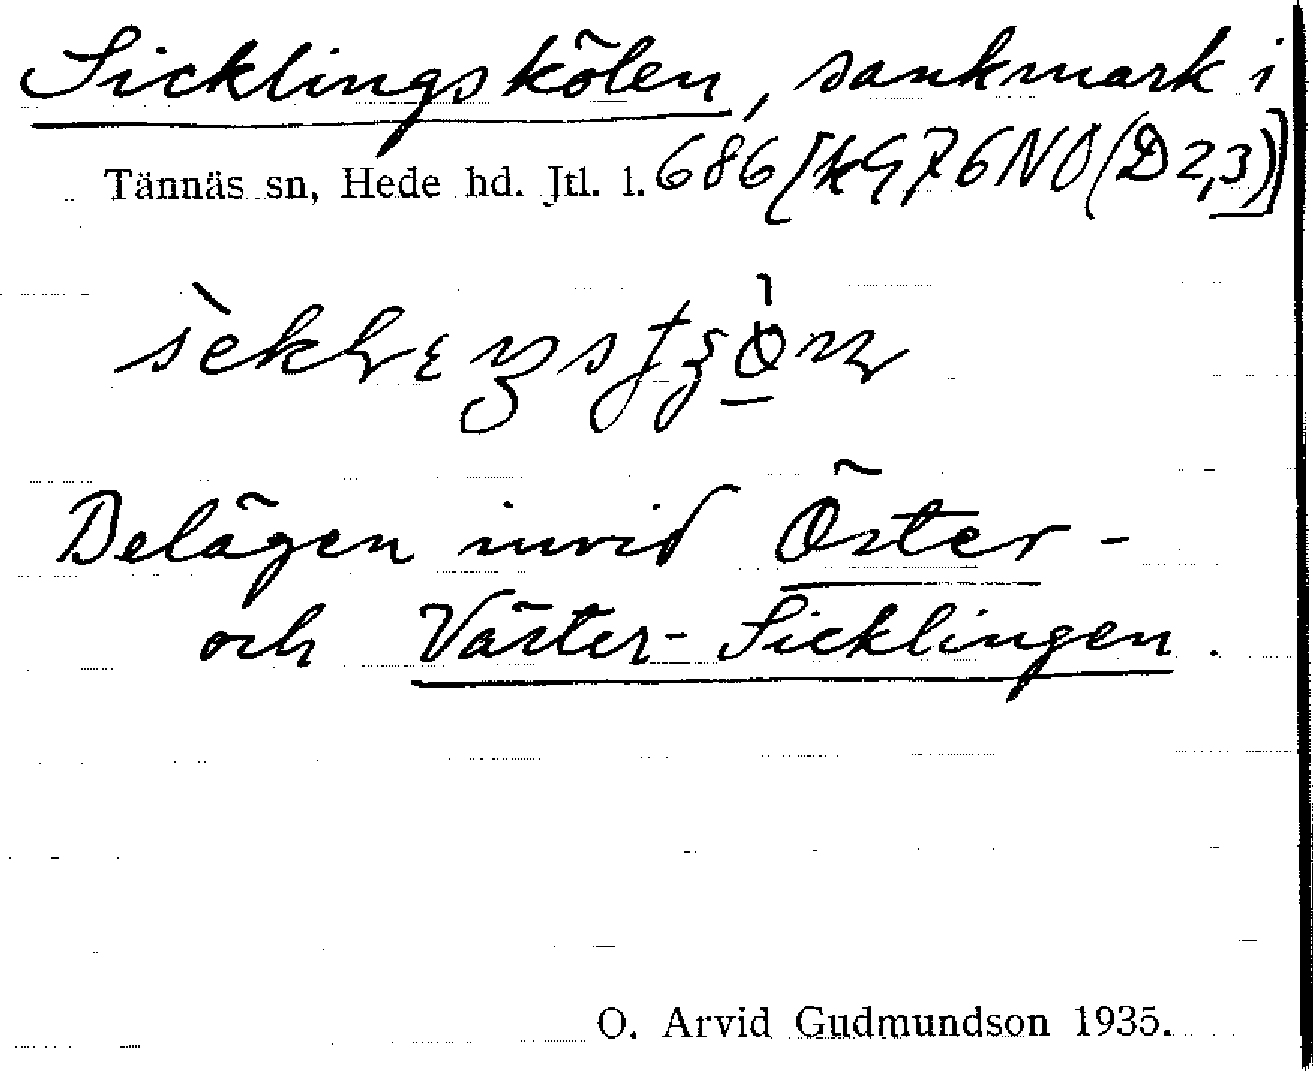 Sicklingskölen, sankmark i
Tännäs sn, Hede hd. Jtl. l. 686 [kg 76 NO (D 2,3)]
Belägen invid Öster-
och Väster-Sicklingen.
O. Arvid Gudmundson 1935.